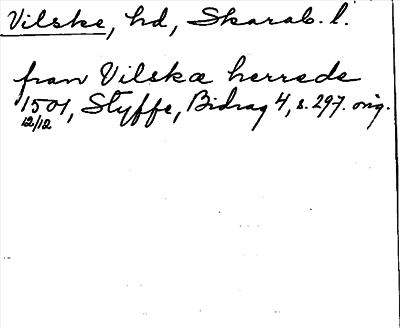 Vilske, hd, Skarab. l.
fran Vilskæ herrede
1501, Styffe, Bidrag 4, s. 297. orig.
12/12